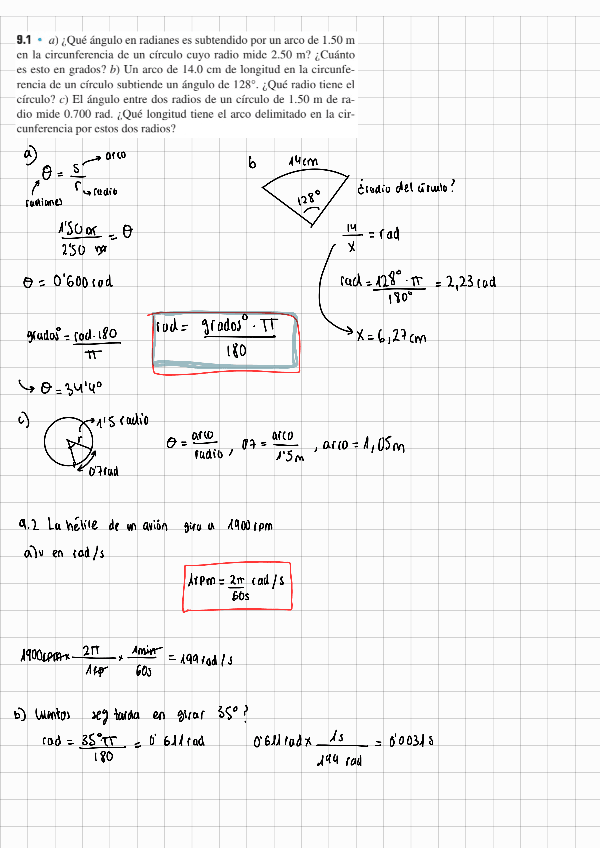 9.1 • a) ¿Qué ángulo en radianes es subtendido por un arco de 1.50 m
en la circunferencia de un círculo cuyo radio mide 2.50 m? ¿Cuánto
es esto en grados? b) Un arco de 14.0 cm de longitud en la circunfe-
rencia de un círculo subtiende un ángulo de 128°. ¿Qué radio tiene el
círculo? c) El ángulo entre dos radios de un círculo de 1.50 m de ra-
dio mide 0.700 rad. ¿Qué longitud tiene el arco delimitado en la cir-
cunferencia por estos dos radios?
a)
θ = s/r
arco
radio
radianes
1'50 m / 2'50 m = θ
θ = 0'600 rad
grados° = rad·180 / π
rad = grados° · π / 180
↳ θ = 34'4°
b
14cm
128°
¿radio del círculo?
14/x = rad
rad = 128° · π / 180° = 2,23 rad
x = 6,27 cm
c)
1'5 radio
r
0'7 rad
θ = arco/radio, 0'7 = arco/1'5m, arco = 1,05m
9.2 La hélice de un avión gira a 1900 rpm
a) v en rad/s
1rpm = 2π/60s rad/s
1900rpm × 2π/1rp × 1min/60s = 199 rad/s
b) Cuántos seg tarda en girar 35°?
rad = 35°π/180 = 0'611 rad
0'611 rad × 1s/199 rad = 0'0031 s